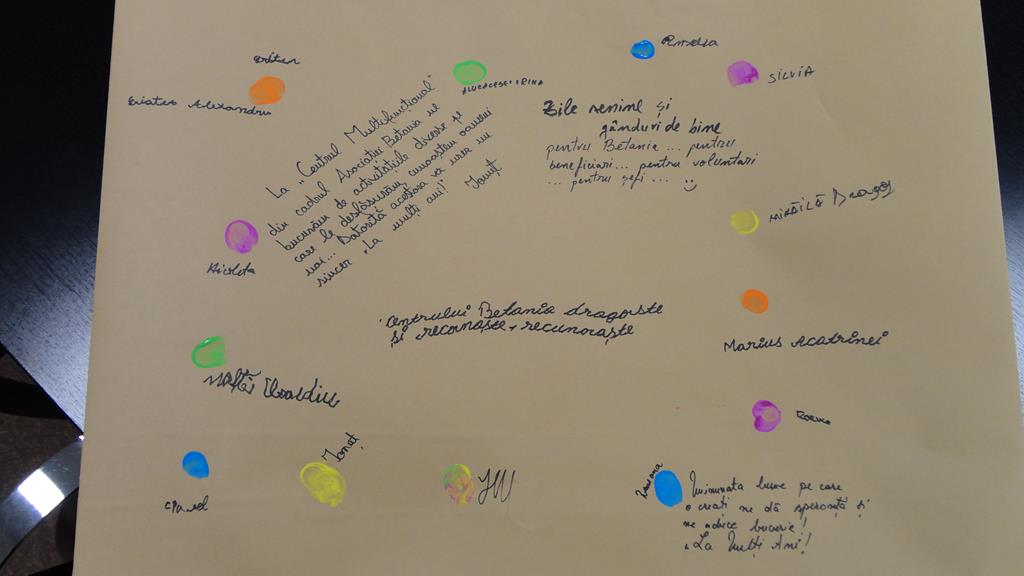 Alexandru
Amelia
SILVIA
La „Centrul Multifuncțional"
din cadrul Asociației Betania ne
bucurăm de activitățile diverse și
care le desfășurăm, cunoaștem oameni
noi... Datorită acestora va urez un
sincer „La mulți ani!" Ionuț
Zile senine și
gânduri de bine
pentru Betania ... pentru
beneficiari... pentru voluntari
... pentru șefi ...
MIHĂILĂ Dragoș
Nicoleta
Centrului Betania dragoste
și recoinaște + recunoaște
Marius Acatrinei
Ionuț
Minunata lume pe care
o creați ne dă speranță și
ne aduce bucurie!
„La Mulți Ani!